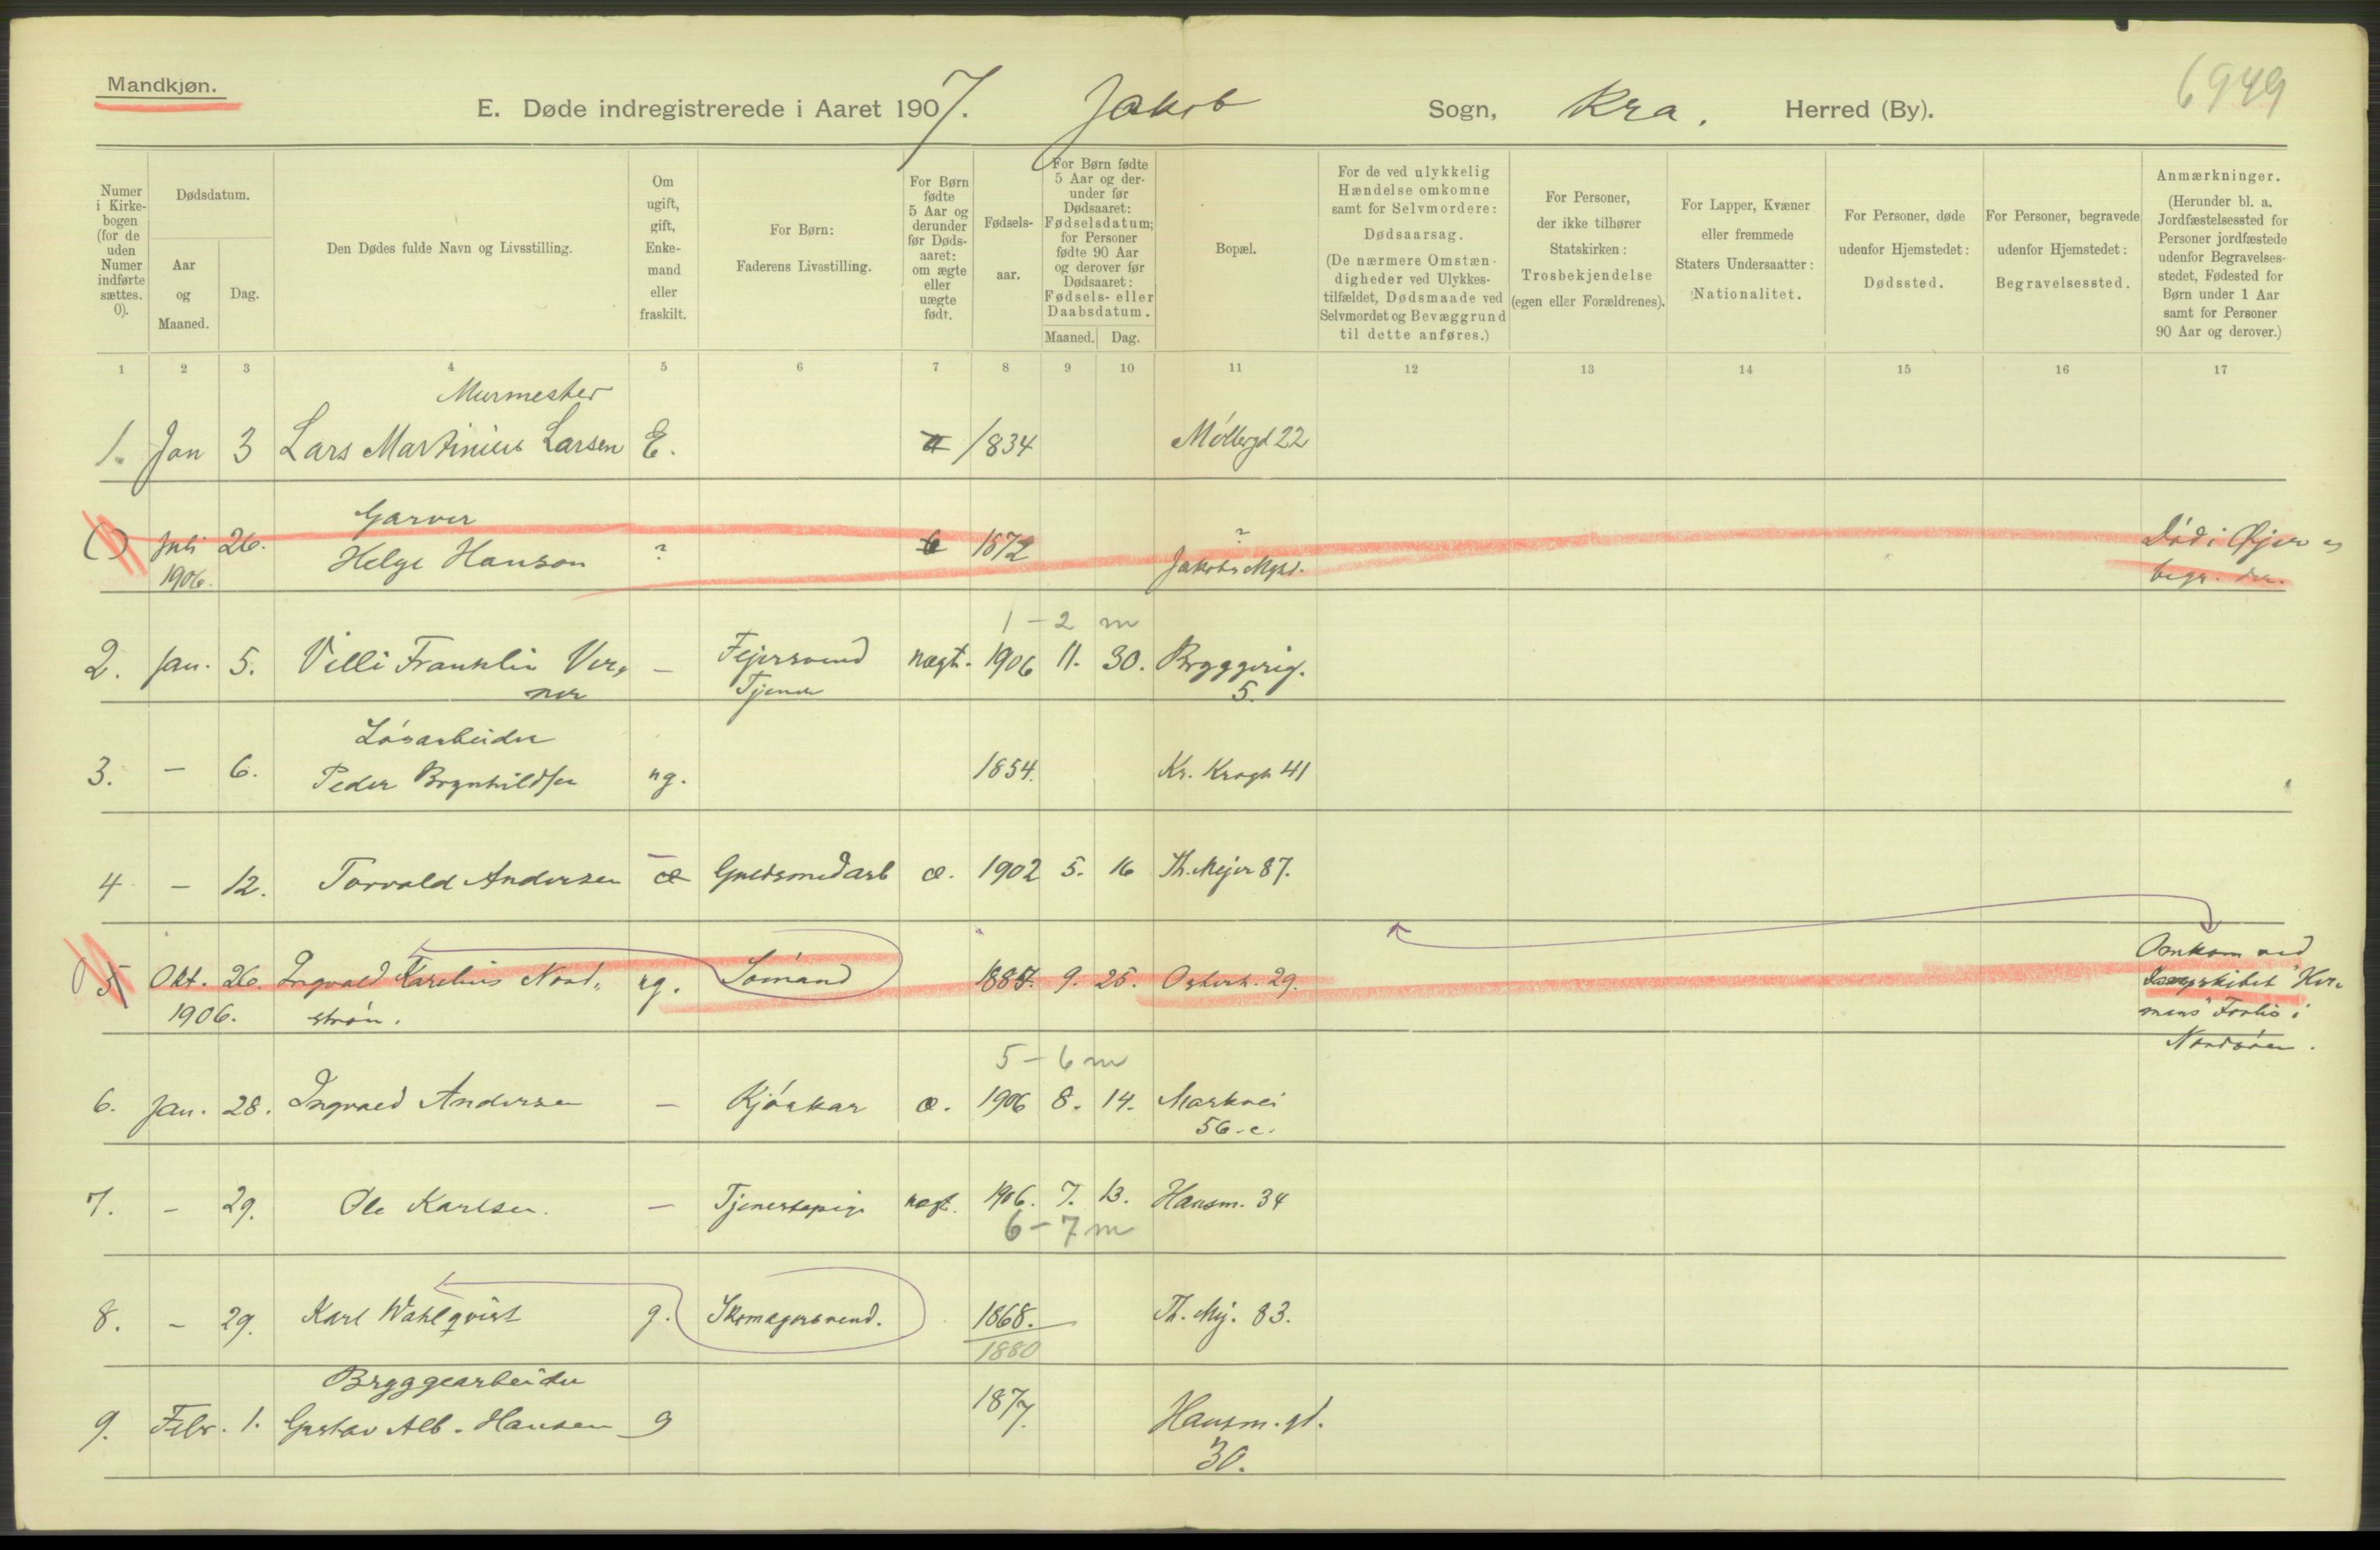 Mandkjøn.
E. Døde indregistrerede i Aaret 1907. Jakob Sogn, Kra. Herred (By).
6949
Numer i Kirkebogen (for de uden Numer indførte sættes. 0).
Dødsdatum.
Aar og Maaned.
Dag.
Den Dødes fulde Navn og Livsstilling.
Om ugift, gift, Enkemand eller fraskilt.
For Børn: Faderens Livsstilling.
For Børn fødte 5 Aar og derunder før Dødsaaret: om ægte eller uægte født.
Fødselsaar.
For Børn fødte 5 Aar og derunder før Dødsaaret: Fødselsdatum; for Personer fødte 90 Aar og derover før Dødsaaret: Fødsels- eller Daabsdatum.
Maaned. Dag.
Bopæl.
For de ved ulykkelig Hændelse omkomne samt for Selvmordere: Dødsaarsag. (De nærmere Omstændigheder ved Ulykkestilfældet, Dødsmaade ved Selvmordet og Bevæggrund til dette anføres.)
For Personer, der ikke tilhører Statskirken: Trosbekjendelse (egen eller Forældrenes).
For Lapper, Kvæner eller fremmede Staters Undersaatter: Nationalitet.
For Personer, døde udenfor Hjemstedet: Dødssted.
For Personer, begravede udenfor Hjemstedet: Begravelsessted.
Anmærkninger. (Herunder bl. a. Jordfæstelsessted for Personer jordfæstede udenfor Begravelsesstedet, Fødested for Børn under 1 Aar samt for Personer 90 Aar og derover.)
1 2 3 4 5 6 7 8 9 10 11 12 13 14 15 16 17
Murmester
1. Jan 3 Lars Martinius Larsen E. 1834 Møllergd 22
Garver
() Juli 26. Helge Hanson ? 1872 ? Død i Øjer og
1906. Jakobs Mgh. begr. der.
1 - 2 m
2. Jan. 5. Villi Franklin Ver, — Fejersvend uægt. 1906 11. 30. Bryggerig.
ner Tjener 5.
Løsarbeider
3. — 6. Peder Brynhildsen ug. 1854. Kr. Krogh 41
4 — 12. Torvald Andersen — æ Guldsmedarb æ. 1902 5. 16 Th. Mejer 87.
() 5 Okt. 26. Ingvald Karelius Nord, ug. Sømand 1885. 9. 25. Osterh. 29. Omkom ved
1906. strøm. Dampskibet "Her,
mans" Forlis i
Nordsøen.
5 - 6 m
6. Jan. 28. Ingvald Andersen — Kjøskar æ. 1906 8. 14. Markvei
56. c.
7. — 29. Ole Karlsen. — Tjenestepige uægt. 1906. 7. 13. Hausm. 34
6 - 7 m
8. — 29. Karl Wahlqvist g. Skomagersvend. 1868. Th. Mej. 83.
1880
Bryggearbeider
9. Febr. 1. Gustav Alb. Hansen g 1877. Hausm. gd.
30.